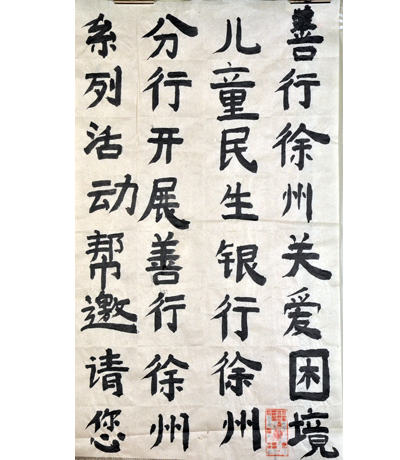 善行徐州关爱困境
儿童民生银行徐州
分行开展善行徐州
系列活动帮邀请您